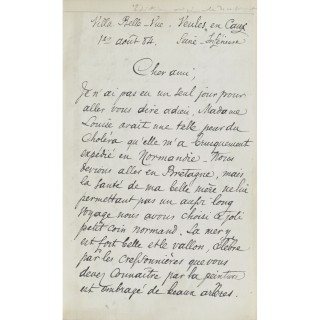 Villa Belle-Vue - Veules en Caux
1er août 84. Seine Inférieure
Cher ami,
Je n'ai pas eu un seul jour pour
aller vous dire adieu. Madame
Louise avait une telle peur du
Choléra qu'elle m'a brusquement
expédié en Normandie. Nous
devions aller en Bretagne, mais
la santé de ma belle mère ne lui
permettant pas un aussi long
voyage nous avons choisi ce joli
petit coin normand. La mer y
est fort belle et le vallon, célèbre
par les cressonnières que vous
devez connaître par la peinture
est ombragé de beaux arbres.